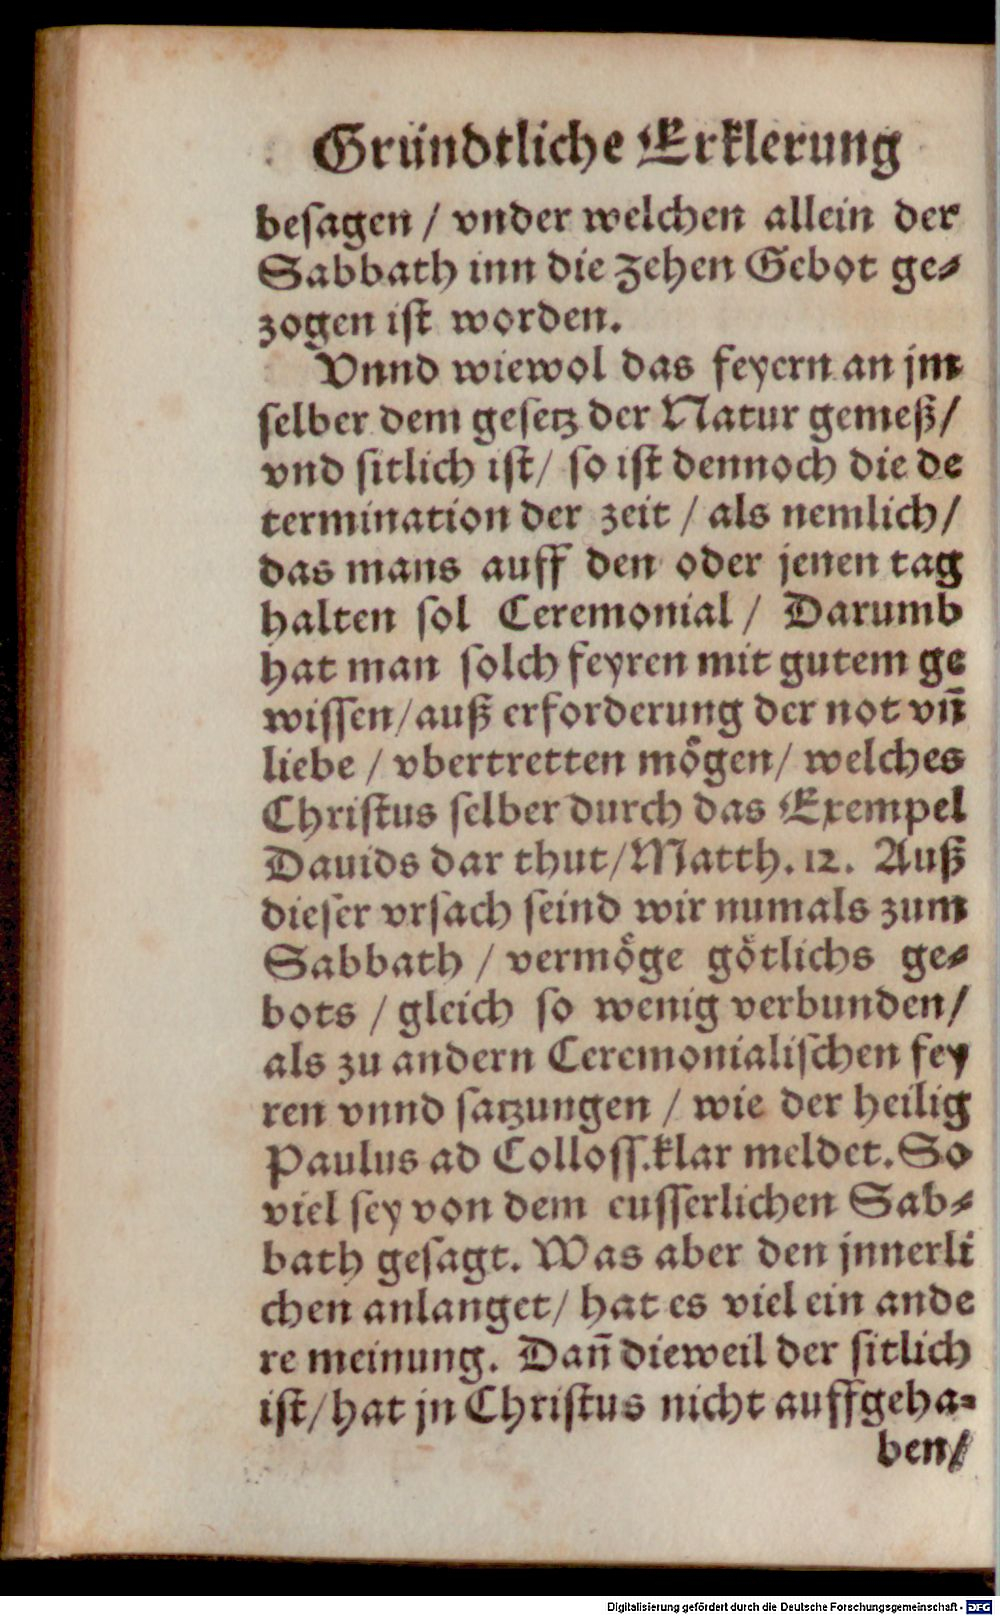 Gründtliche Erklerung
beſagen / vnder welchen allein der
Sabbath inn die zehen Gebot ge⸗
zogen iſt worden.
Vnnd wiewol das feyern an jm
ſelber dem geſetz der Natur gemeß/
vnd ſitlich iſt/ ſo iſt dennoch die de
termination der zeit / als nemlich/
das mans auff den oder jenen tag
halten ſol Ceremonial / Darumb
hat man ſolch feyren mit gutem ge
wiſſen/auß erforderung der not vñ
liebe / vbertretten moͤgen/ welches
Chriſtus ſelber durch das Exempel
Dauids dar thut/Matth. 12. Auß
dieſer vrſach ſeind wir numals zum
Sabbath / vermoͤge goͤtlichs ge⸗
bots / gleich ſo wenig verbunden/
als zu andern Ceremonialiſchen fey
ren vnnd ſatzungen / wie der heilig
Paulus ad Colloſſ.klar meldet. So
viel ſey von dem euſſerlichen Sab⸗
bath geſagt. Was aber den jnnerli
chen anlanget/ hat es viel ein ande
re meinung. Dañ dieweil der ſitlich
iſt/hat jn Chriſtus nicht auffgeha⸗
ben/
Digitalisierung gefördert durch die Deutsche Forschungsgemeinschaft - DFG